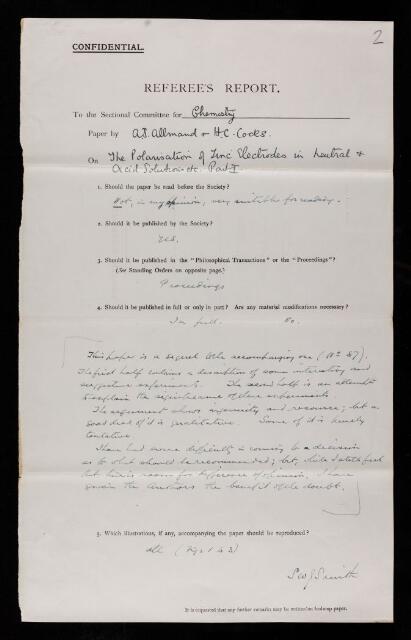 2
CONFIDENTIAL.
REFEREE'S REPORT.
To the Sectional Committee for Chemistry
Paper by A. J. Allmand & H. C. Cocks.
On The Polarisation of Zinc Electrodes in Neutral &
Acid Solutions &c. Part II
1. Should the paper be read before the Society?
Not, in my opinion, very suitable for reading.
2. Should it be published by the Society?
Yes.
3. Should it be published in the "Philosophical Transactions" or the "Proceedings"?
(See Standing Orders on opposite page.)
Proceedings
4. Should it be published in full or only in part? Are any material modifications necessary?
In full. No.
This paper is a sequel to the accompanying one (No 57).
The first half contains a description of some interesting and
suggestive experiments. The second half is an attempt
to explain the significance of these experiments
The argument shows ingenuity and resource; but a
good deal of it is qualitative. Some of it is purely
tentative.
I have had some difficulty in coming to a decision
as to what should be recommended; but, while I
that there is room for difference of opinion, I have
given the Authors the benefit of the doubt.
5. Which illustrations, if any, accompanying the paper should be reproduced?
All (Figs 1 & 2)
S W J Smith
It is requested that any further remarks may be written on foolscap paper.